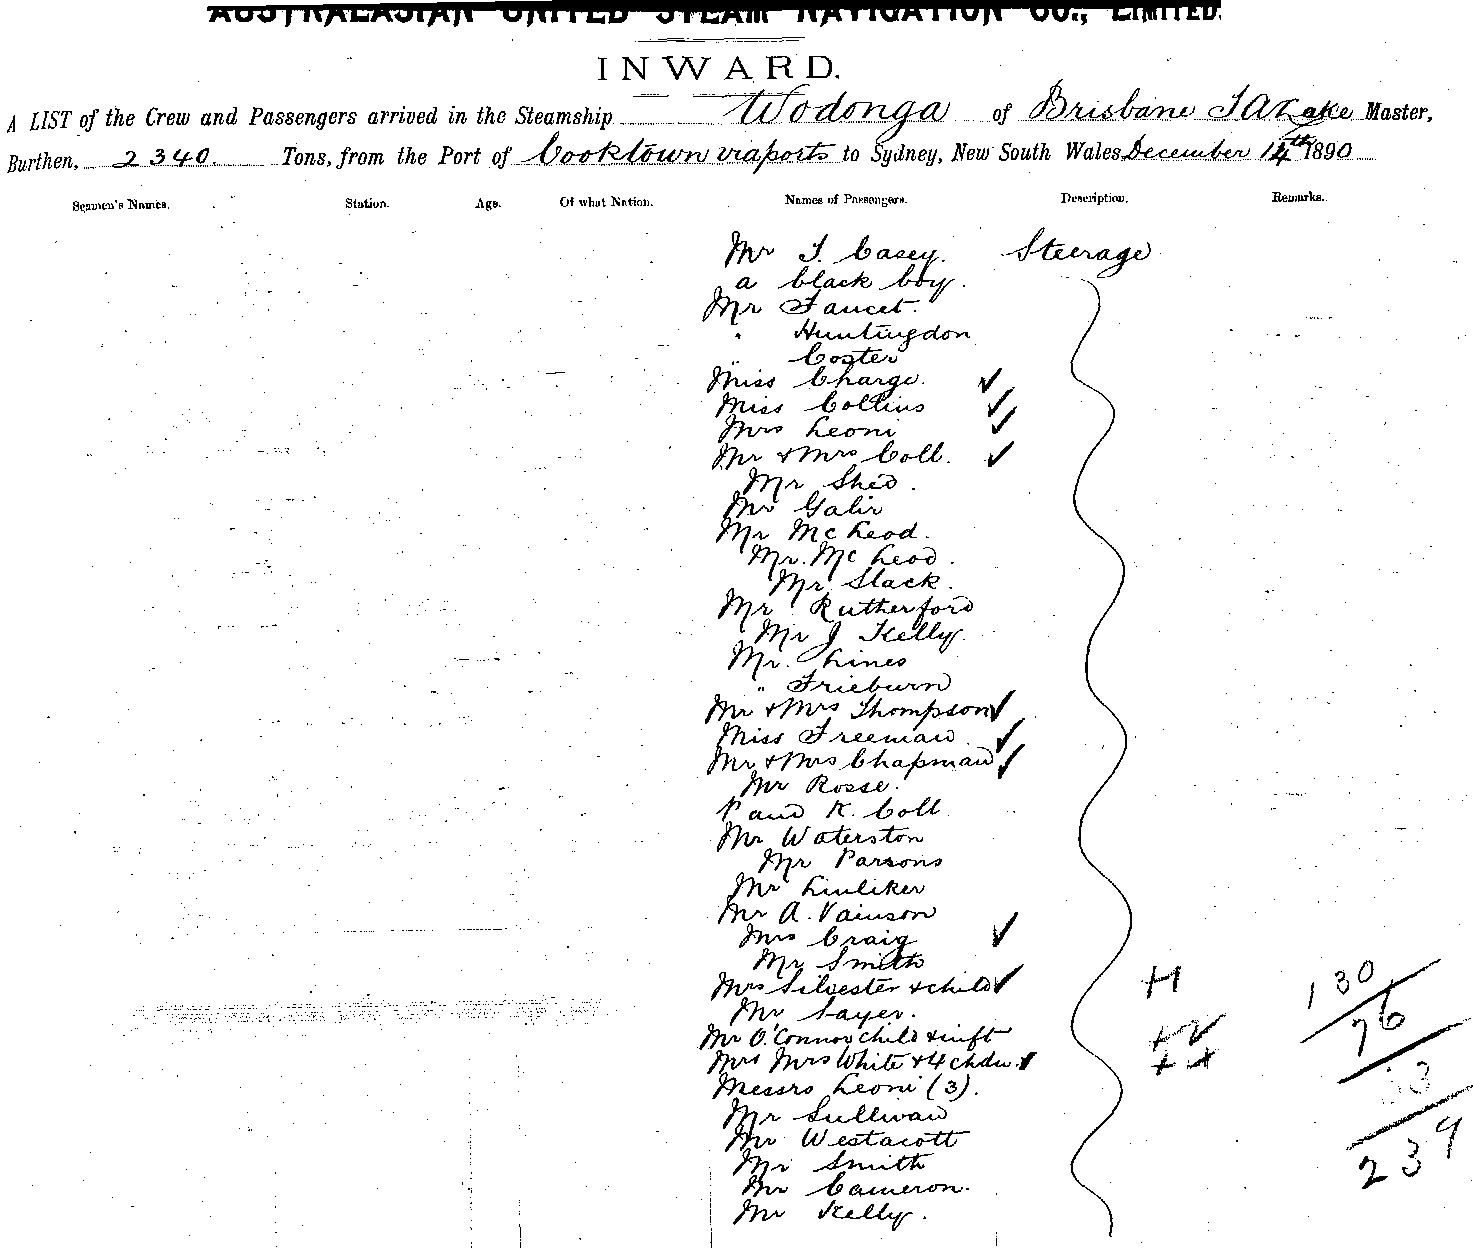 AUSTRALASIAN UNITED STEAM NAVIGATION CO., LIMITED.
INWARD.
A LIST of the Crew and Passengers arrived in the Steamship Wodonga of Brisbane J A Lake Master,
Burthen, 2340. Tons, from the Port of Cooktown via ports to Sydney, New South Wales December 14th 1890
Seamen's Names. Station. Age. Of what Nation. Names of Passengers. Description. Remarks.
Mr T. Casey. Steerage
a black boy.
Mr Faucet.
" Huntingdon
" Coster
Miss Charge. ✓
Miss Collins ✓
Mrs Leoni ✓
Mr & Mrs Coll. ✓
Mr Shed.
Mr Galir
Mr McLeod.
Mr. McLeod.
Mr Slack.
Mr Rutherford
Mr J Kelly.
Mr. Lines
" Frieburn
Mr & Mrs Thompson ✓
Miss Freeman ✓
Mr & Mrs Chapman ✓
Mr Rosse.
P and K. Coll
Mr Waterston
Mr Parsons
Mr Linliker
Mr A. Vainson
Mrs Craig ✓
Mr Smith
Mrs Silvester & child ✓ H
Mr Sayer. 130
Mr O'Connor child & inft 76
Mrs Mrs White & 4 chdn. ✓
Messrs Leoni (3).
Mr Sullivan
Mr Westacott 239
Mr Smith
Mr Cameron.
Mr Kelly.